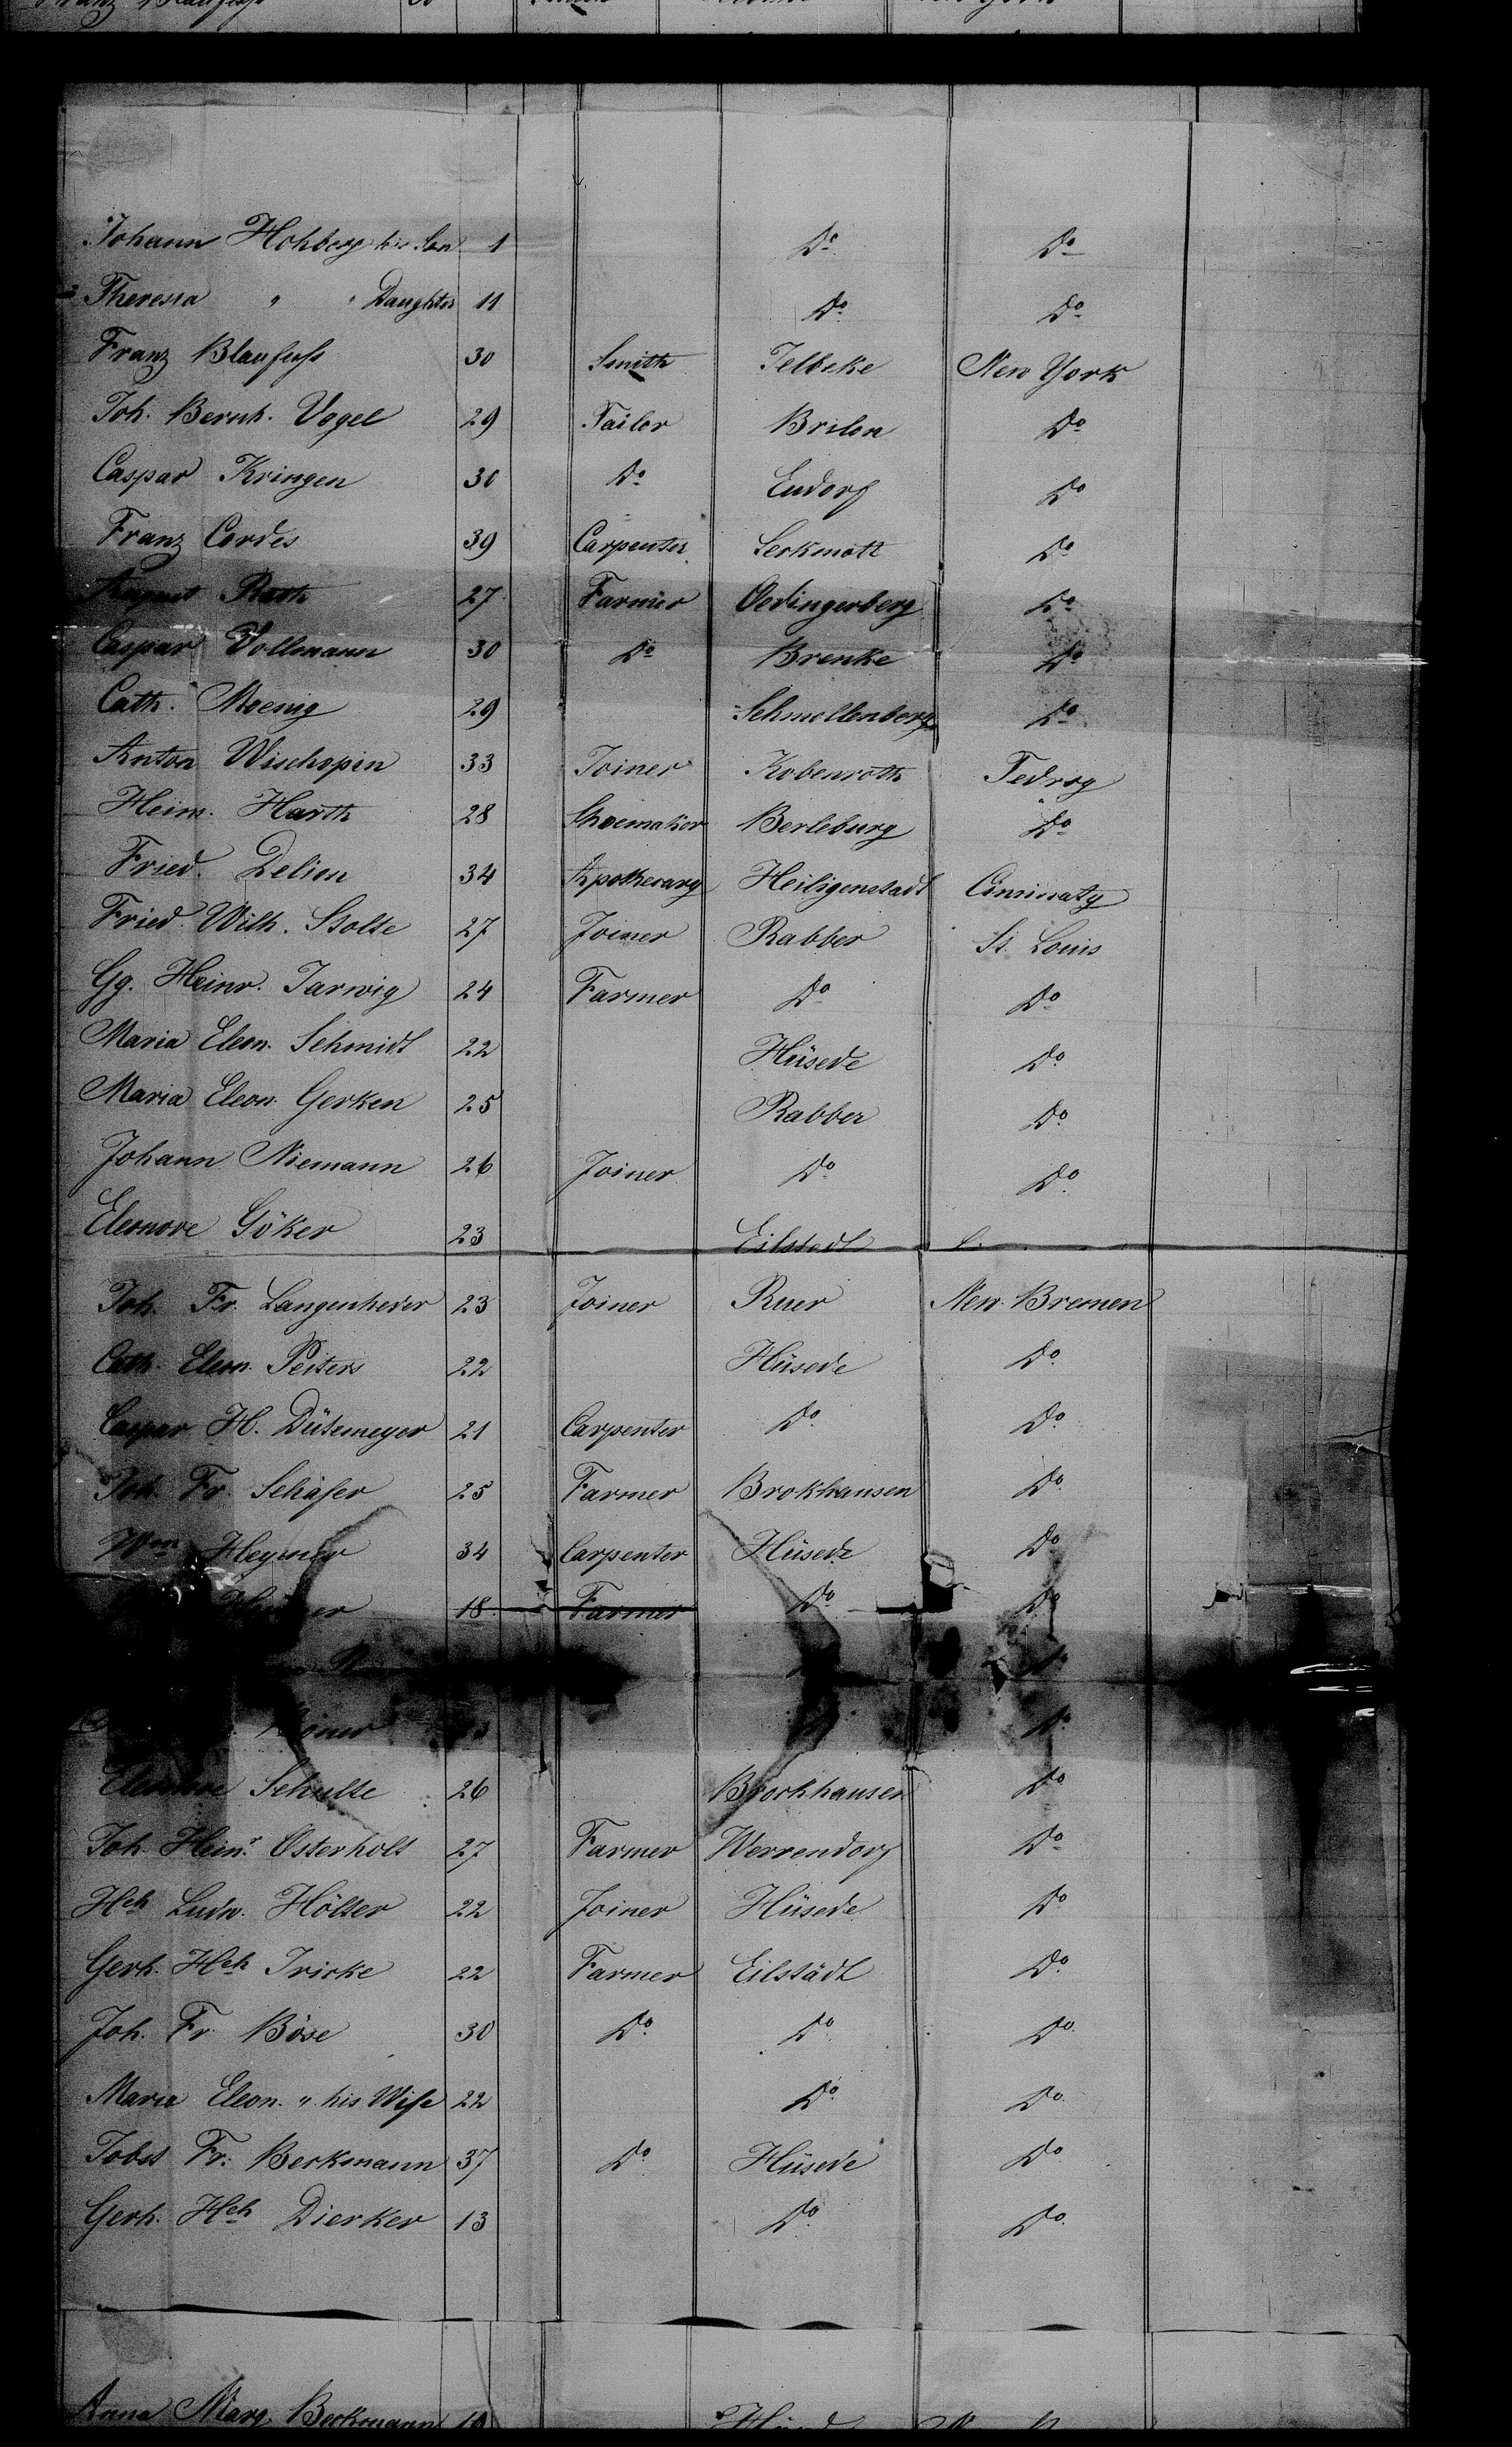 Johann Hohberg his Son 1 Do Do
Theresia " " Daughter 11 Do Do
Franz Blaufuss 30 Smith Telbeke New York
Joh. Bernh. Vogel 29 Tailor Brilon Do
Caspar Kringen 30 Do Eudorf Do
Franz Cordes 39 Carpenter Do
August Rath 27 Farmer Oedingerberg Do
Caspar Vollmann 30 Do Brenke Do
Cath. Moenig 29 Schmellenberg Do
Anton Wischopin 33 Joiner Kobenroth
Heinr. Harth 28 Shoemaker Berleburg Do
Fried. Delion 34 Apothecary Heiligenstadt Cinninaty
Fried. Wilh. Stolte 27 Joiner Rabber St. Louis
Gg. Heinr. Jarwig 24 Farmer Do Do
Maria Eleon. Schmidt 22 Hüsede Do
Maria Eleon. Gerken 25 Rabber Do
Johann Niemann 26 Joiner Do Do
Eleonore Göker 23 Eilstadt
Joh. Fr. Langenheder 23 Joiner Ruer New Bremen
Cath. Eleon. Peiters 22 Hüsede Do
Caspar H. Dütemeyer 21 Carpenter Do Do
Joh. Fr. Schäfer 25 Farmer Brokhausen Do
Wm Heymer 34 Carpenter Hüsede Do
18 Farmer Do Do
Do
Do
Eleonore Schulte 26 Brockhausen Do
Joh. Heinr. Osterholt 27 Farmer Werrendorf Do
Hch Ludw. Hölter 22 Joiner Hüsede Do
Gerh. Hch Fricke 22 Farmer Eilstädt Do
Joh. Fr. Böse 30 Do Do Do
Maria Eleon. " his Wife 22 Do Do
Jobst Fr. Berkmann 37 Do Hüsede Do
Gerh. Hch Dierker 13 Do Do
Anna Marg. Beckmann 19